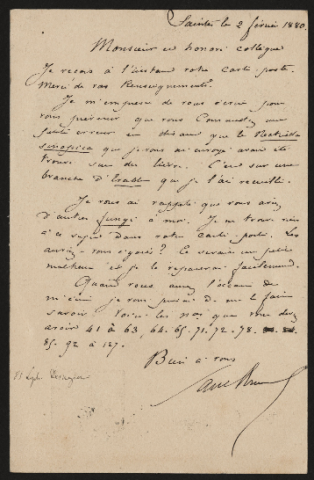 Saintes le 2 février 1880.
Monsieur et honoré collègue
Je reçois à l'instant votre carte-poste.
Merci de vos renseignements.
Je m'empresse de vous écrire pour
vous prévenir que vous commettez une
petite erreur en disant que le
que je vous ai envoyé avait été
trouvé sur du . C'est sur une
branche d'Erable que je l'ai recueilli.
Je vous ai rappelé que vous aviez
d'autres fungi à moi. Je ne trouve rien
à ce sujet dans votre carte-poste. Les
auriez-vous égarés? Ce serait un petit
malheur et je le réparerai facilement.
Quand vous aurez l'occasion de
m'écrire je vous prierai de me le faire
savoir. Voici les nos que vous devez
avoir 41 à 63, 64. 65. 71. 72. 78.
85. 92 à 127.
Bien à vous
Paul Brunaud